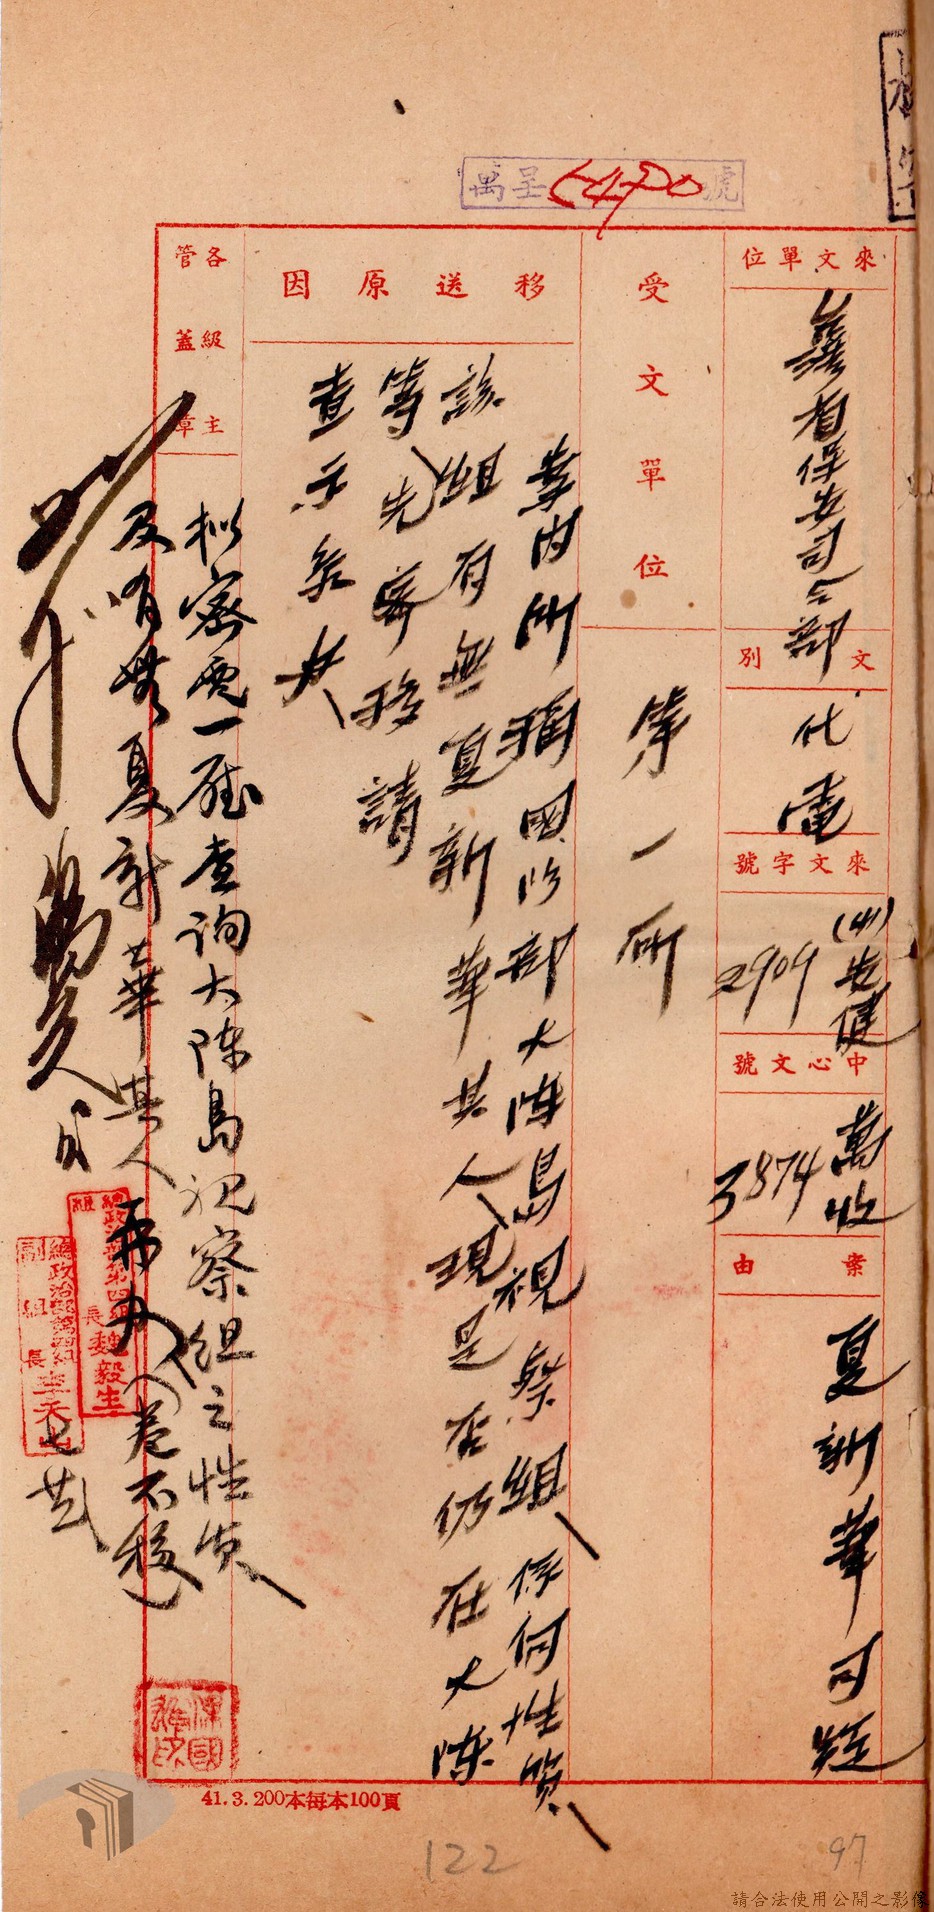 萬呈5490號
來文單位
臺省保安司令部
文別
代電
來文字號
(41)安健
2909
中心文號
萬收
3874
案由
夏新華可疑
受文單位
第一研
移送原因
案內所稱國防部大陳島視察組、係何性質、
該組有無夏新華其人、現是否仍在大陳
等、先寄移請
查示系者、
各級主
管蓋章
擬密電一廳查詢大陳島視察組之性質、
及有無夏新華其人再辦(卷不移)
總政治部第四組
組長魏毅生
總政治部第四組
副組長李天山
41.3.200本每本100頁
122
97
請合法使用公開之影像